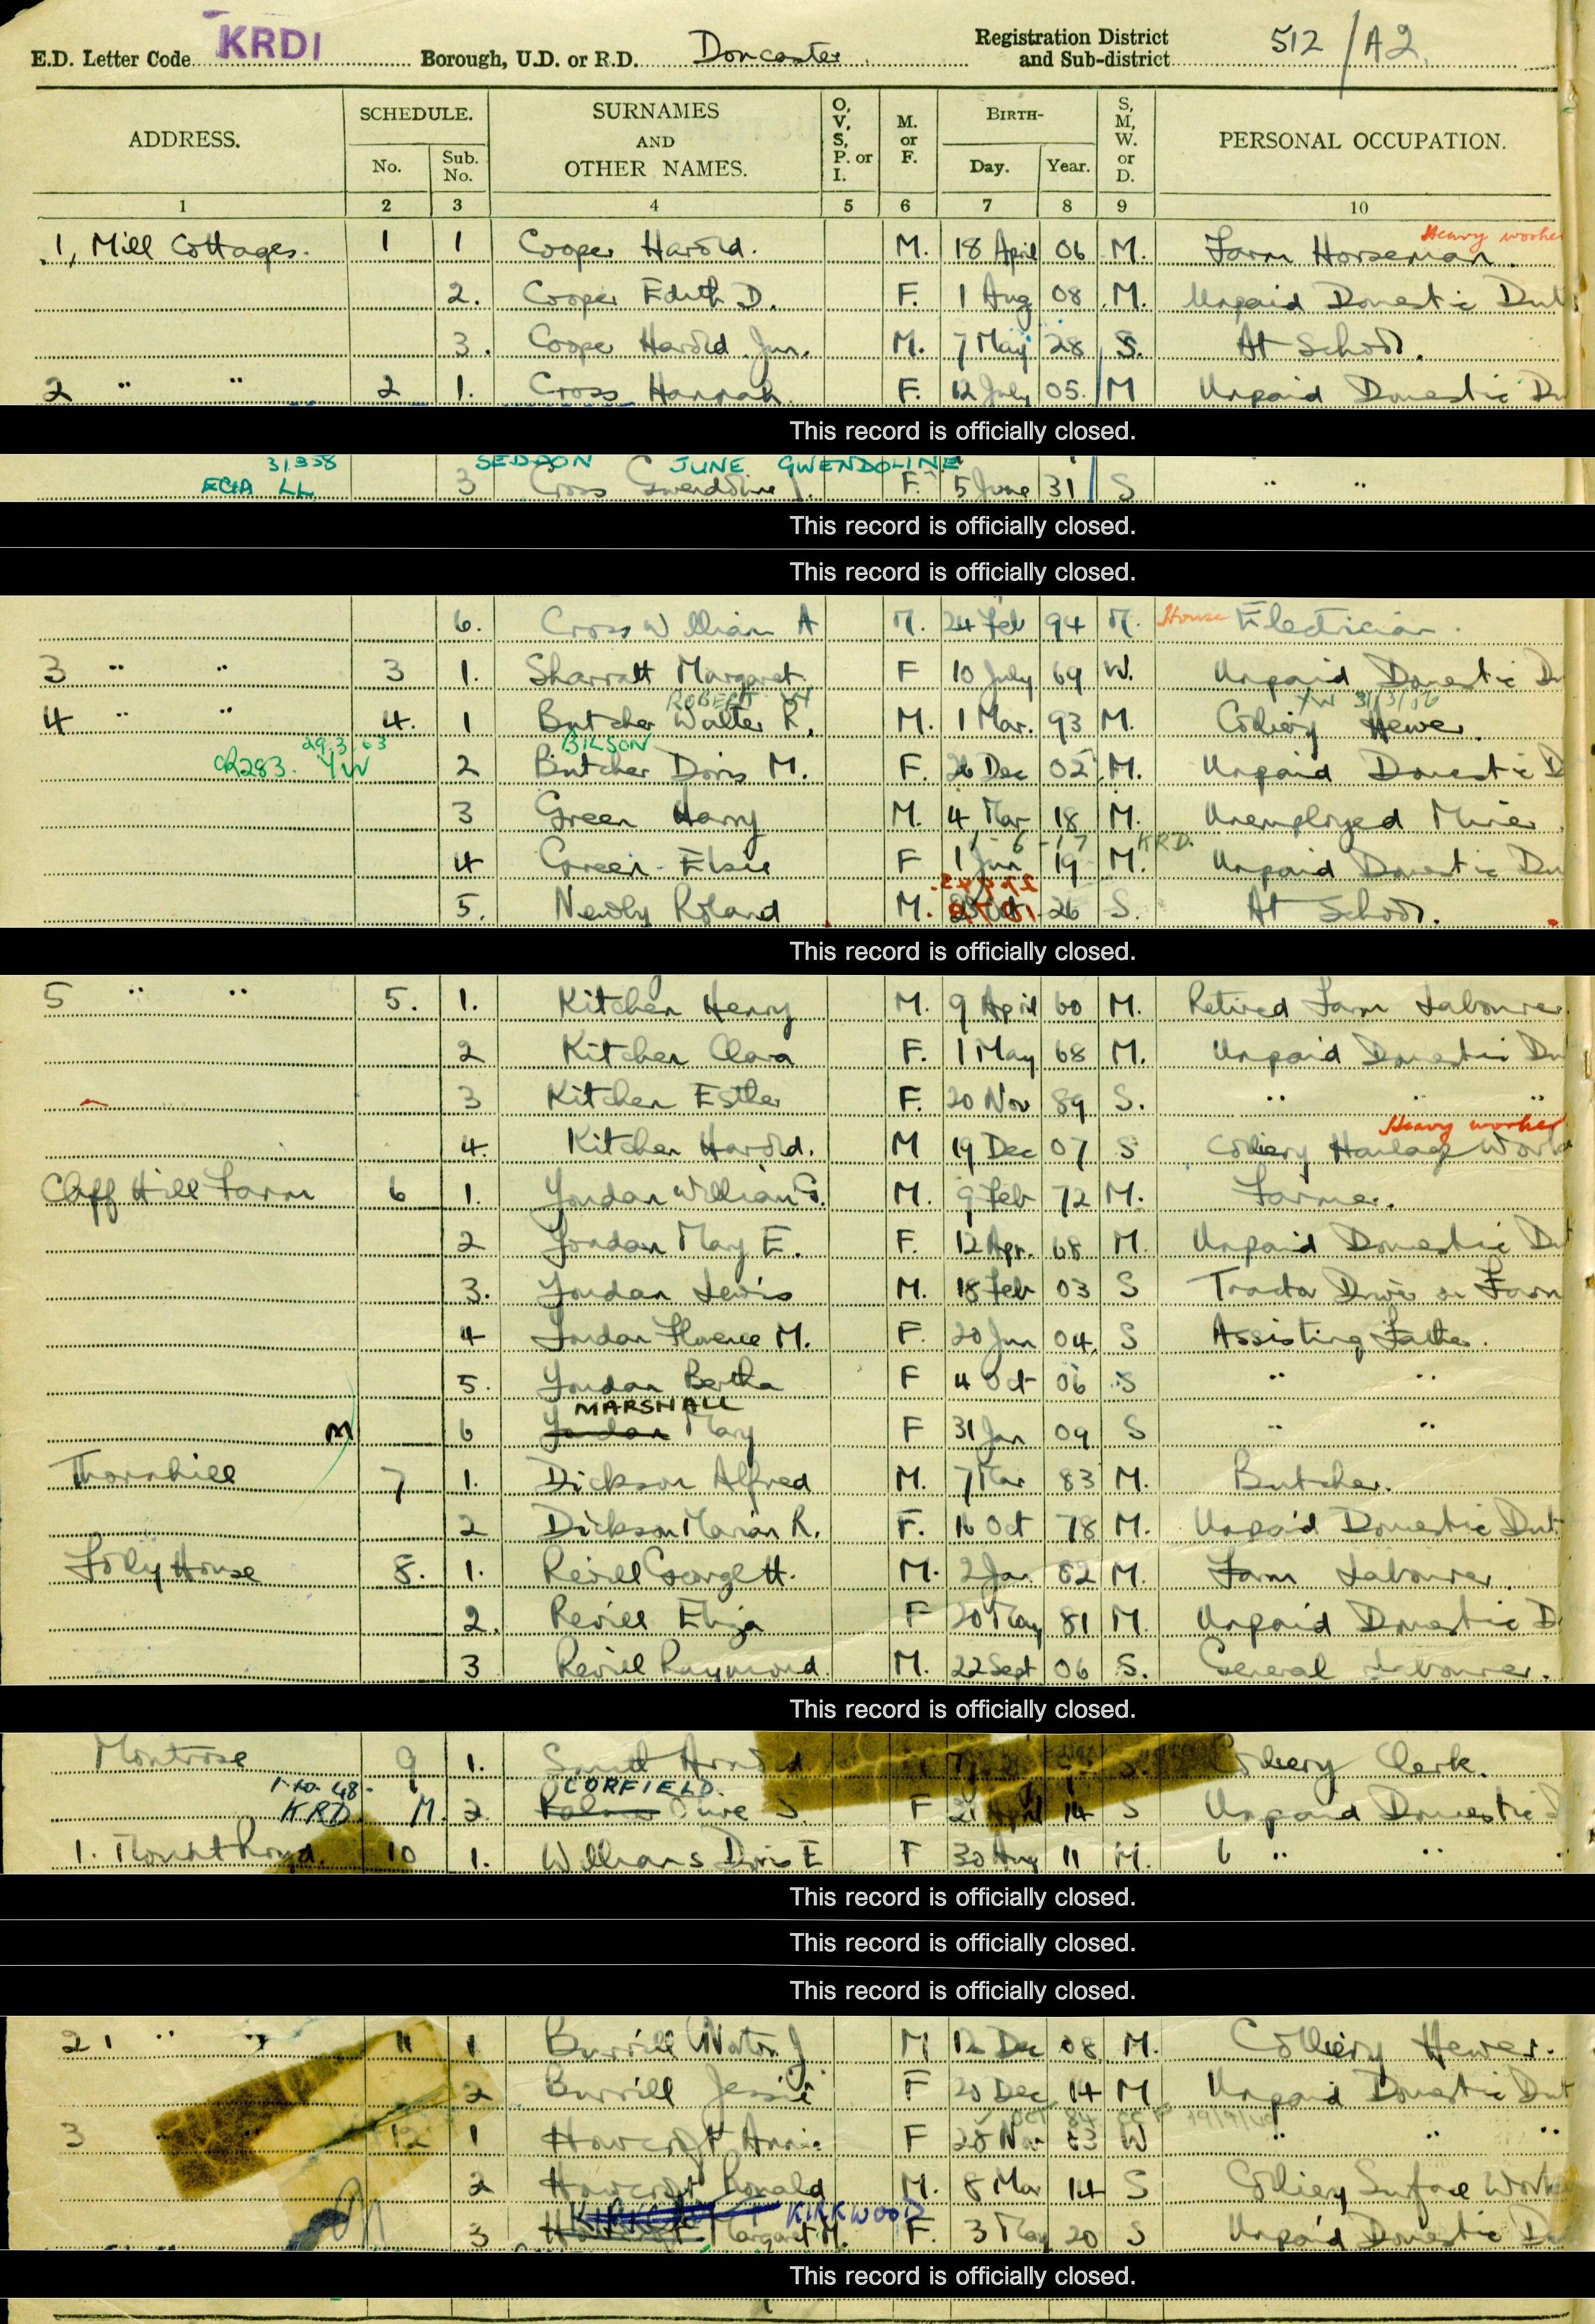 E.D. Letter Code KRDI Borough, U.D. or R.D. Doncaster Registration District and Sub-district 512/A2
ADDRESS. SCHEDULE. No. Sub. No. SURNAMES AND OTHER NAMES. O, V, S, P. or I. M. or F. BIRTH- Day. Year. S, M, W. or D. PERSONAL OCCUPATION.
1 2 3 4 5 6 7 8 9 10
Heavy worker
1, Mill Cottages. 1 1 Cooper Harold. M. 18 April 06 M. Farm Horseman.
2. Cooper Edith D. F. 1 Aug 08 M. Unpaid Domestic Dut
3. Cooper Harold Jun. M. 7 May 28 S. At School.
2 " " 2 1. Cross Hannah. F. 12 July 05. M Unpaid Domestic Du
This record is officially closed.
31358 SEDDON JUNE GWENDOLINE
ECIA LL 3 Cross Gwendoline J. F. 5 June 31 S " "
This record is officially closed.
This record is officially closed.
6. Cross William A M. 24 Feb 94 M. House Electrician.
3 " " 3 1. Sharratt Margaret. F 10 July 69 W. Unpaid Domestic Du
ROBERT YW YW 31/3/
4 " " 4. 1 Butcher Walter R. M. 1 Mar. 93 M. Colliery Hewer.
29.3.63 BILSON
CR283. YW 2 Butcher Doris M. F. 26 Dec 02 M. Unpaid Domestic D
3 Green Harry M. 4 Mar 18 M. Unemployed Miner.
1-6-17 KRD.
4 Green Elsie F 1 Jun 19 M. Unpaid Domestic Du
5. Newby Roland M. Oct 26 S. At School.
This record is officially closed.
5 " " 5. 1. Kitchen Henry M. 9 April 60 M. Retired Farm Labourer
2 Kitchen Clara F. 1 May 68 M. Unpaid Domestic Du
3 Kitchen Esther F. 20 Nov 89 S. " " "
Heavy worker
4. Kitchen Harold. M 19 Dec 07 S Colliery Haulage Work
Cliff Hill Farm 6 1. Yondan William G. M. 9 Feb 72 M. Farmer.
2 Yondan Mary E. F. 12 Apr. 68 M. Unpaid Domestic Du
3. Yondan Lewis M. 18 Feb 03 S Tractor Driver on Farm
4 Yondan Florence M. F. 20 Jun 04. S Assisting Father.
5. Yondan Bertha F 4 Oct 06 S " "
MARSHALL
M 6 Yondan Mary F 31 Jan 09 S " "
Thornhill 7 1. Dickson Alfred M. 7 Mar 83 M. Butcher.
2 Dickson Marian R. F. 16 Oct 78 M. Unpaid Domestic Dut
Folly House 8. 1. Revill George H. M. 2 Jan 82 M. Farm Labourer.
2. Revill Eliza F 20 May 81 M. Unpaid Domestic D
3 Revill Raymond. M. 22 Sept 06 S. General Labourer.
This record is officially closed.
Montrose 9 1. Smith Arnold S. Colliery Clerk.
CORFIELD.
KRD. M. 2. Olive S. F 21 April 14 S Unpaid Domestic D
1. 10 1. Williams Doris E F 30 Aug 11 M. " " "
This record is officially closed.
This record is officially closed.
This record is officially closed.
2 " " 11 1 Burrill J M 12 Dec 08 M. Colliery Hewer.
2 Burrill Jessie F 20 Dec 14 M Unpaid Domestic Dut
OCT 84 19/9/
3 12 1 Howcroft Annie F 28 Nov 83 W " " "
2 Howcroft Ronald M. 8 Mar 14 S Colliery Surface Worker
KIRKWOOD
3 Margaret M. F. 3 May 20 S Unpaid Domestic Du
This record is officially closed.